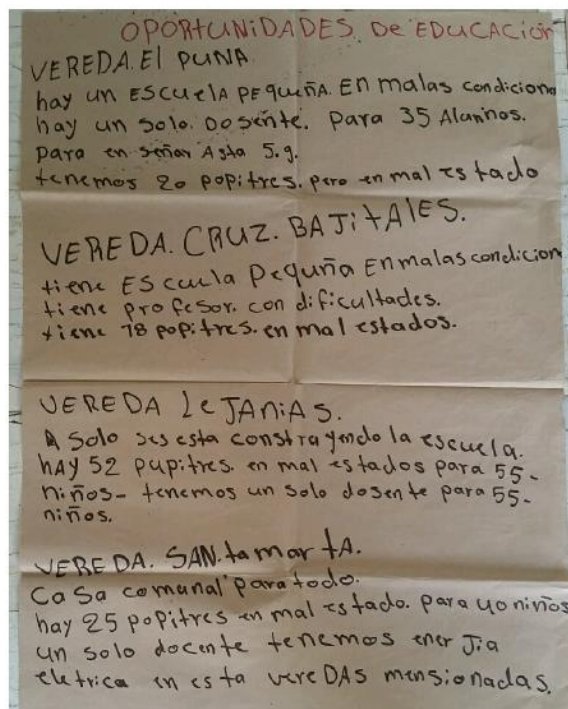 OPORtUNiDADES De EDUCACiòn
VEREDA. El PUNA
hay un ESCUElA PEqueñA. En malas condicione
hay un solo. DOSente. Para 35 Alunnos.
Para en señar Asta 5.g.
tenemos 20 popitres. pero en mal estado
VEREDA. CRUZ. BAJitAlES.
tiene EScuela Pequña En malas condicion
tiene profesor. con dificultades.
tiene 18 popitres. en mal estados.
VEREDA LeJANiAS.
A solo ses esta constrayendo la escuela.
hAy 52 pupitres. en mal estados para 55-
niños- tenemos un solo dosente para 55-
niños.
VEREDA. SAN.tamartA.
CaSa comunal para todo.
hay 25 popitres en mal estado. para 40 niños
un solo docente tenemos enerJia
eletrica en esta vereDAS mensionadas.